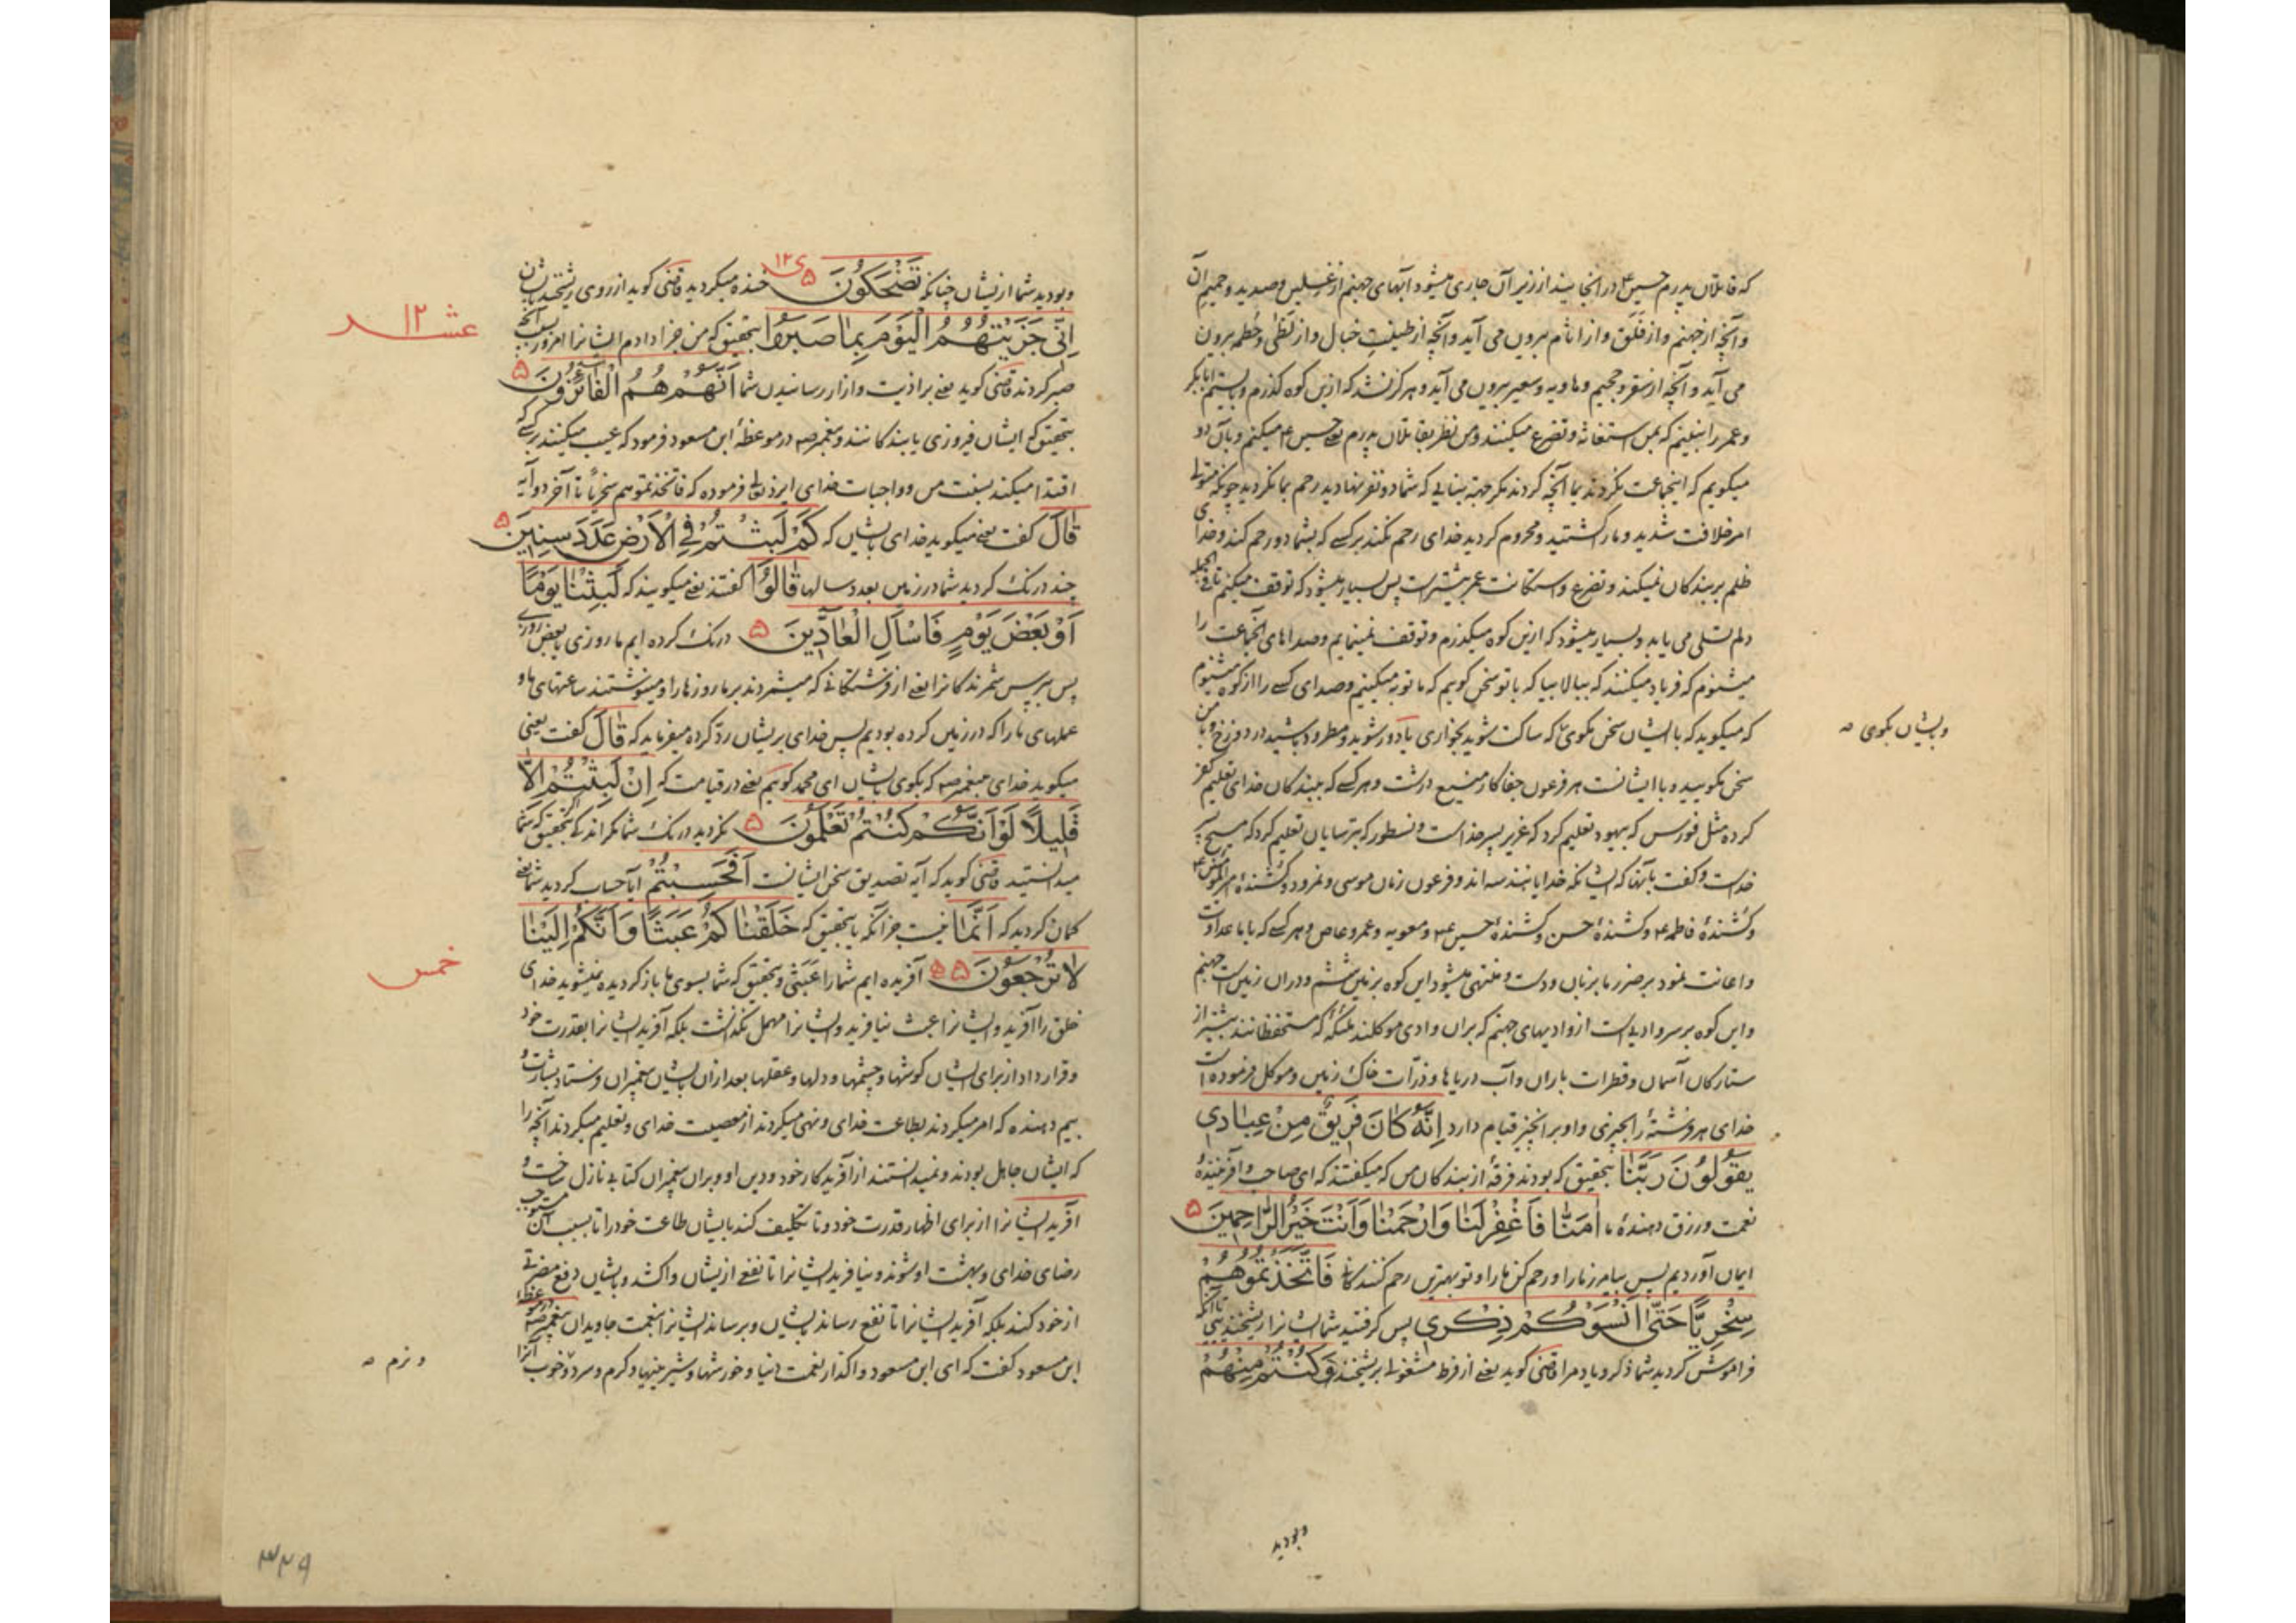 که قاتلان پدرم حسین ع در انجا یند از زیر آن جاری میشود آبهای جهنم از غسلین و صدید و حمیم آن
و آنچه از جهنم و از فلق و از اثام بیرون می آید و آنچه از طینت خبال و از لظی و حطمه بیرون
می آید و آنچه از سقر و جحیم و هاویه و سعیر بیرون می آید و هرگز نشد که ازین کوه گذرم و بایستم ابابکر
و عمر را نبینم که بمن استغاثه و تضرع میکنند و من نظر بقاتلان پدرم یعنی حسین ع میکنم و بآن دو
میگویم که اینجماعت نکردند بما آنچه کردند مگر جهة بنایی که شما دو نفر نهادید رحم بما نکردید چونکه متولی
امر خلافت شدید و مارا کشتید و محروم کردید خدای رحم نکند بر کسی که بشما دو رحم کند و خدای
ظلم بر بندگان نمیکند و تضرع و استکانت عمر بیشتر است پس بسیار میشود که توقف میکنم تا فی الجمله
دلم تسلی می یابد و بسیار میشود که ازین کوه میگذرم و توقف نمینمایم و صداهای انجماعت را
میشنوم که فریاد میکنند که بیا بالا بیا که با تو سخن گویم که ما توبه میکنیم و صدای کسی را از کوه میشنوم
که میگوید که با ایشان سخن مگوی که ساکت شوید بخواری یا دور شوید و مطرود باشید در دوزخ و با من
و بایشان بگوی صه
سخن مگویید و با ایشانست هر فرعون جفاکار مضیع درشت و هر کسی که ببندگان خدای تعلیم کفر
کرده مثل فورس که بیهود تعلیم کرد که عزیر پسر خداست و نسطور که بترسایان تعلیم کرد که مسیح پسر
خداست و گفت بآنها که ایشانکه خدایانند سه اند و فرعون زمان موسی و نمرود و کشندهٔ امیرالمؤمنین ع
و کشندهٔ فاطمه ع و کشندهٔ حسن و کشندهٔ حسین ع و معویه و عمرو عاص و هر کسی که با ما عداوت
و اعانت نمود بر ضرر ما بزبان و دست و منتهی میشود این کوه بزمین ششم و در آن زمین است جهنم
و این کوه بر سر وادیست از وادیهای جهنم که بران وادی موکلند ملئکهٔ که مستحفظانند بیشتر از
ستارگان آسمان و قطرات باران و آب دریاها و ذرات خاک زمین و موکل فرموده است
خدای هر فرشتهٔ را بچیزی و او بر انچیز قیام دارد اِنَّهُ كَانَ فَرِيقٌ مِنْ عِبَادِي
يَقُولُونَ رَبَّنَا بتحقیق که بودند فرقهٔ از بندگان من که میگفتند که ای صاحب و آفرینندهٔ
نعمت و رزق دهندهٔ ما اٰمَنَّا فَاغْفِرْ لَنَا وَارْحَمْنَا وَاَنْتَ خَيْرُ الرَّاحِمِينَ ۵
ایمان آوردیم پس بیامرز ما را و رحم کن ما را و تو بهترین رحم کنندگانی فَاتَّخَذْتُمُوهُمْ
سِخْرِيًّا حَتّٰى اَنْسَوْكُمْ ذِكْرِي پس گرفتید شما ایشانرا ریشخندی تا آنکه
فراموش کردید شما ذکر و یاد مرا قاضی گوید یعنی از فرط مشغولی بریشخند وَكُنْتُمْ مِنْهُمْ
و بودید
و بودید شما از یشان چنانکه تَضْحَكُونَ ۵ خنده میکردید قاضی گوید از روی ریشخند بایشان
اِنِّي جَزَيْتُهُمُ الْيَوْمَ بِمَا صَبَرُوا بتحقیق که من جزا دادم ایشانرا امروز بسبب آنچه
عشر ۱۲
صبر کردند قاضی گوید یعنی بر اذیت و آزار رسانیدن شما اَنَّهُمْ هُمُ الْفَائِزُونَ ۵
بتحقیق که ایشان فیروزی یابندگانند و پیغمبر صه در موعظهٔ ابن مسعود فرمود که عیب میکنند بر کسی که
اقتدا میکند بسنت من و واجبات خدای ایزد تعالی فرموده که فاتخذتموهم سخریا تا آخر دو آیه
قَالَ گفت یعنی میگوید خدای بایشان که كَمْ لَبِثْتُمْ فِي الْاَرْضِ عَدَدَ سِنِينَ ۵
چند درنگ کردید شما در زمین بعدد سالها قَالُوا گفتند یعنی میگویند که لَبِثْنَا يَوْمًا
اَوْ بَعْضَ يَوْمٍ فَاسْاَلِ الْعَادِّينَ ۵ درنگ کرده ایم ما روزی یا بعض روزی
پس بپرس شمرندگانرا یعنی از فرشتگانی که میشمردند بر ما روزها را و مینوشتند ساعتهای ما و
عملهای ما را که در زمین کرده بودیم پس خدای بریشان رد کرده میفرماید که قَالَ گفت یعنی
میگوید خدای بپیغمبر صه که بگوی بایشان ای محمد گوییم یعنی در قیامت که اِنْ لَبِثْتُمْ اِلَّا
قَلِيلًا لَوْ اَنَّكُمْ كُنْتُمْ تَعْلَمُونَ ۵ نکردید درنگ شما مگر اندکی اگر بتحقیق که شما
میدانستید قاضی گوید که آیه تصدیق سخن ایشانست اَفَحَسِبْتُمْ آیا حساب کردید شما یعنی
گمان کردید که اَنَّمَا نیست جز آنکه بتحقیق که خَلَقْنَاكُمْ عَبَثًا وَاَنَّكُمْ اِلَيْنَا
لَا تُرْجَعُونَ ۵۵ آفریده ایم شما را عبثی و بتحقیق که شما بسوی ما باز گردیده نمیشوید خدای
خمس
خلق را آفرید و ایشانرا عبث نیافرید و ایشانرا مهمل نگذاشت بلکه آفرید ایشانرا بقدرت خود
و قرار داد از برای ایشان گوشها و چشمها و دلها و عقلها بعد ازان بایشان پیغمبران فرستاد بشارت و
بیم دهنده که امر میکردند بطاعت خدای و نهی میکردند از معصیت خدای و تعلیم میکردند آنچه را
که ایشان جاهل بودند و نمیدانستند از آفریدگار خود و دین او و بران پیغمبران کتابی نازل ساخت و
آفرید ایشانرا از برای اظهار قدرت خود و تا تکلیف کند بایشان طاعت خود را تا بسبب آن مستوجب
رضای خدای و بهشت او شوند و نیافرید ایشانرا تا نفعی از یشان واکشد و بایشان دفع مضرتی
از خود کند بلکه آفرید ایشانرا تا نفع رساند بایشان و برساند ایشانرا بنعمت جاویدان پیغمبر صه در موعظهٔ
ابن مسعود گفت که ای ابن مسعود واگذار نعمت دنیا و خورشها و شیرینیها و گرم و سرد و خوب آنرا
و نرم صه
۳۲۹